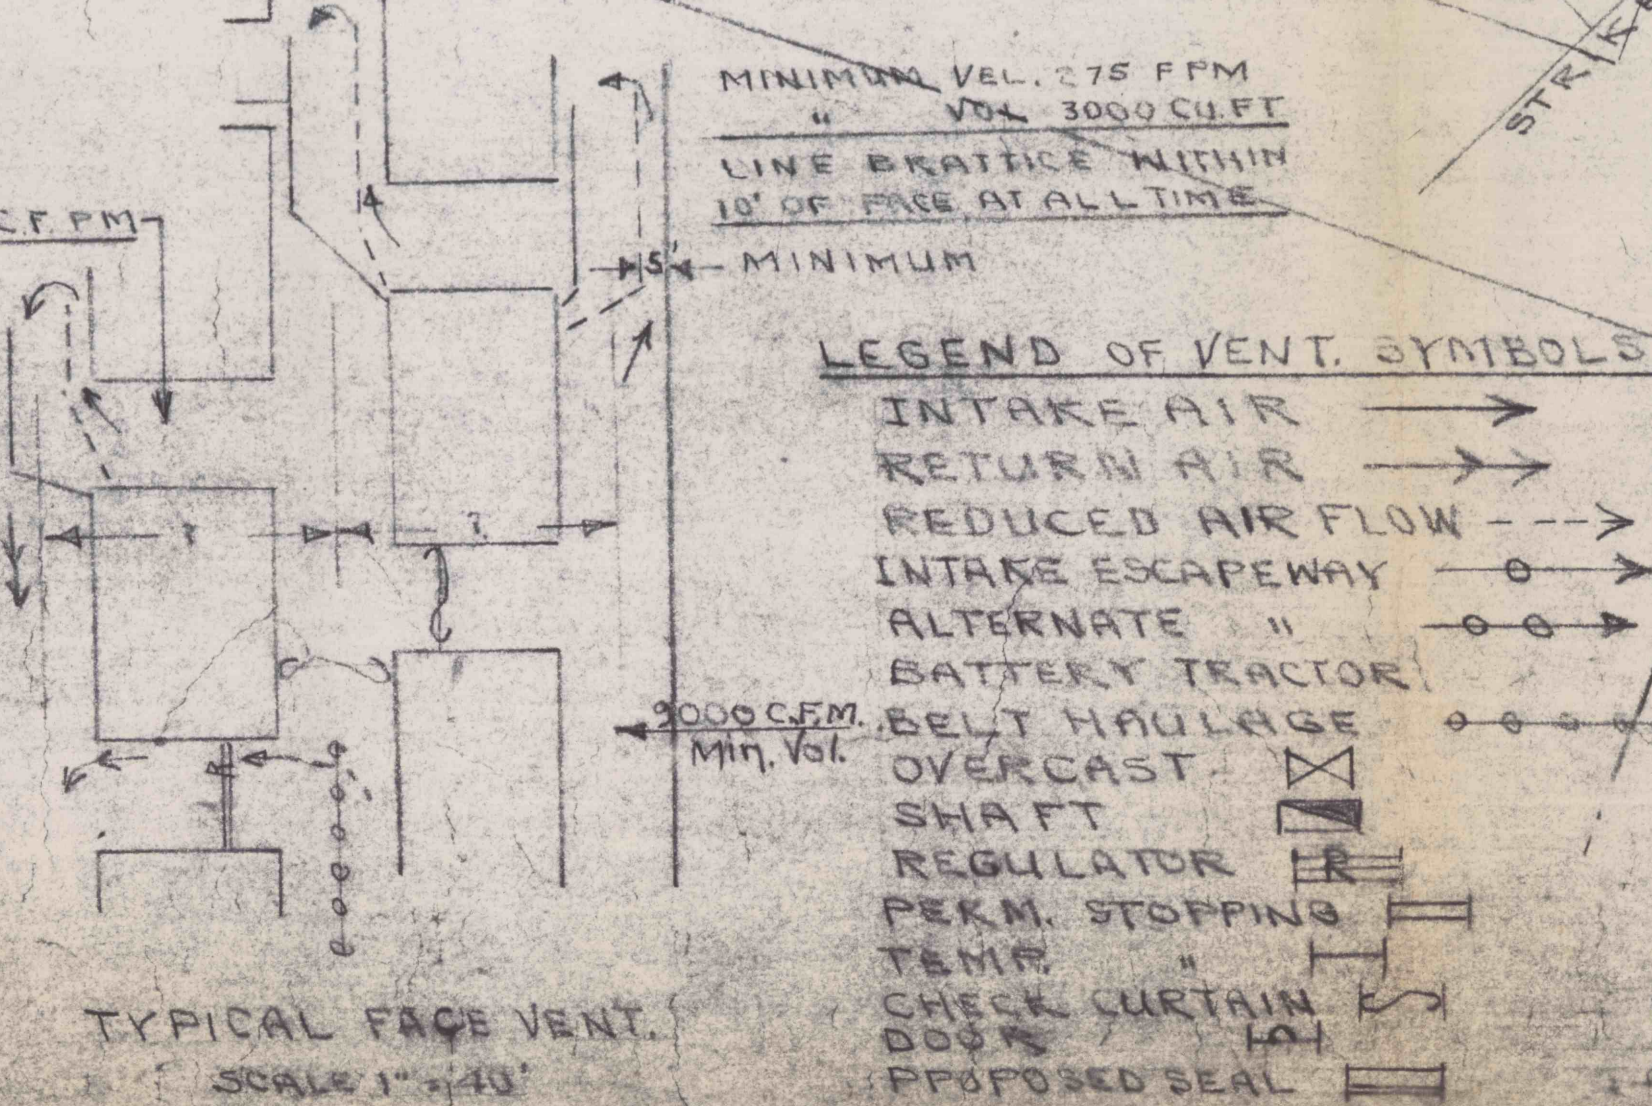 MINIMUM VEL. 275 FPM
" VOL 3000 CU.FT
LINE BRATTICE WITHIN
10' OF FACE AT ALL TIME
C.F.PM
5' MINIMUM
LEGEND OF VENT. SYMBOLS
INTAKE AIR
RETURN AIR
REDUCED AIR FLOW
INTAKE ESCAPEWAY
ALTERNATE "
BATTERY TRACTOR
9000 C.F.M.
Min. Vol.
BELT HAULAGE
OVERCAST
SHAFT
REGULATOR R
PERM. STOPPING
TEMP. "
CHECK CURTAIN
DOOR D
PPOPOSED SEAL
TYPICAL FACE VENT.
SCALE 1" = 40'